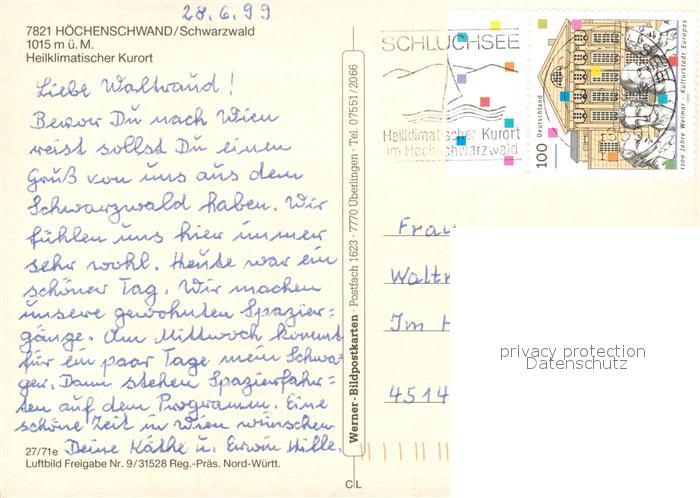 28.6.99
7821 HÖCHENSCHWAND/Schwarzwald
1015 m ü. M.
Heilklimatischer Kurort
Liebe Waltraud!
Bevor Du nach Wien
reist sollst Du einen
Gruß von uns aus dem
Schwarzwald haben. Wir
fühlen uns hier immer
sehr wohl. Heute war ein
schöner Tag. Wir machen
unsere gewohnten Spazier=
gänge. Am Mittwoch kommt
für ein paar Tage mein Schwa=
ger. Dann stehen Spazierfahr=
ten auf dem Programm. Eine
schöne Zeit in Wien wünschen
Deine Käthe u. Erwin Hille.
27/71e
Luftbild Freigabe Nr. 9/31528 Reg.-Präs. Nord-Württ.
Werner-Bildpostkarten · Postfach 1623 · 7770 Überlingen · Tel. 07551/2066
CL
SCHLUCHSEE
Heilklimatischer Kurort
im Hochschwarzwald
Deutschland
100
1100 Jahre Weimar - Kulturstadt Europas
1999
Frau
Waltr
Im H
4514
privacy protection
Datenschutz